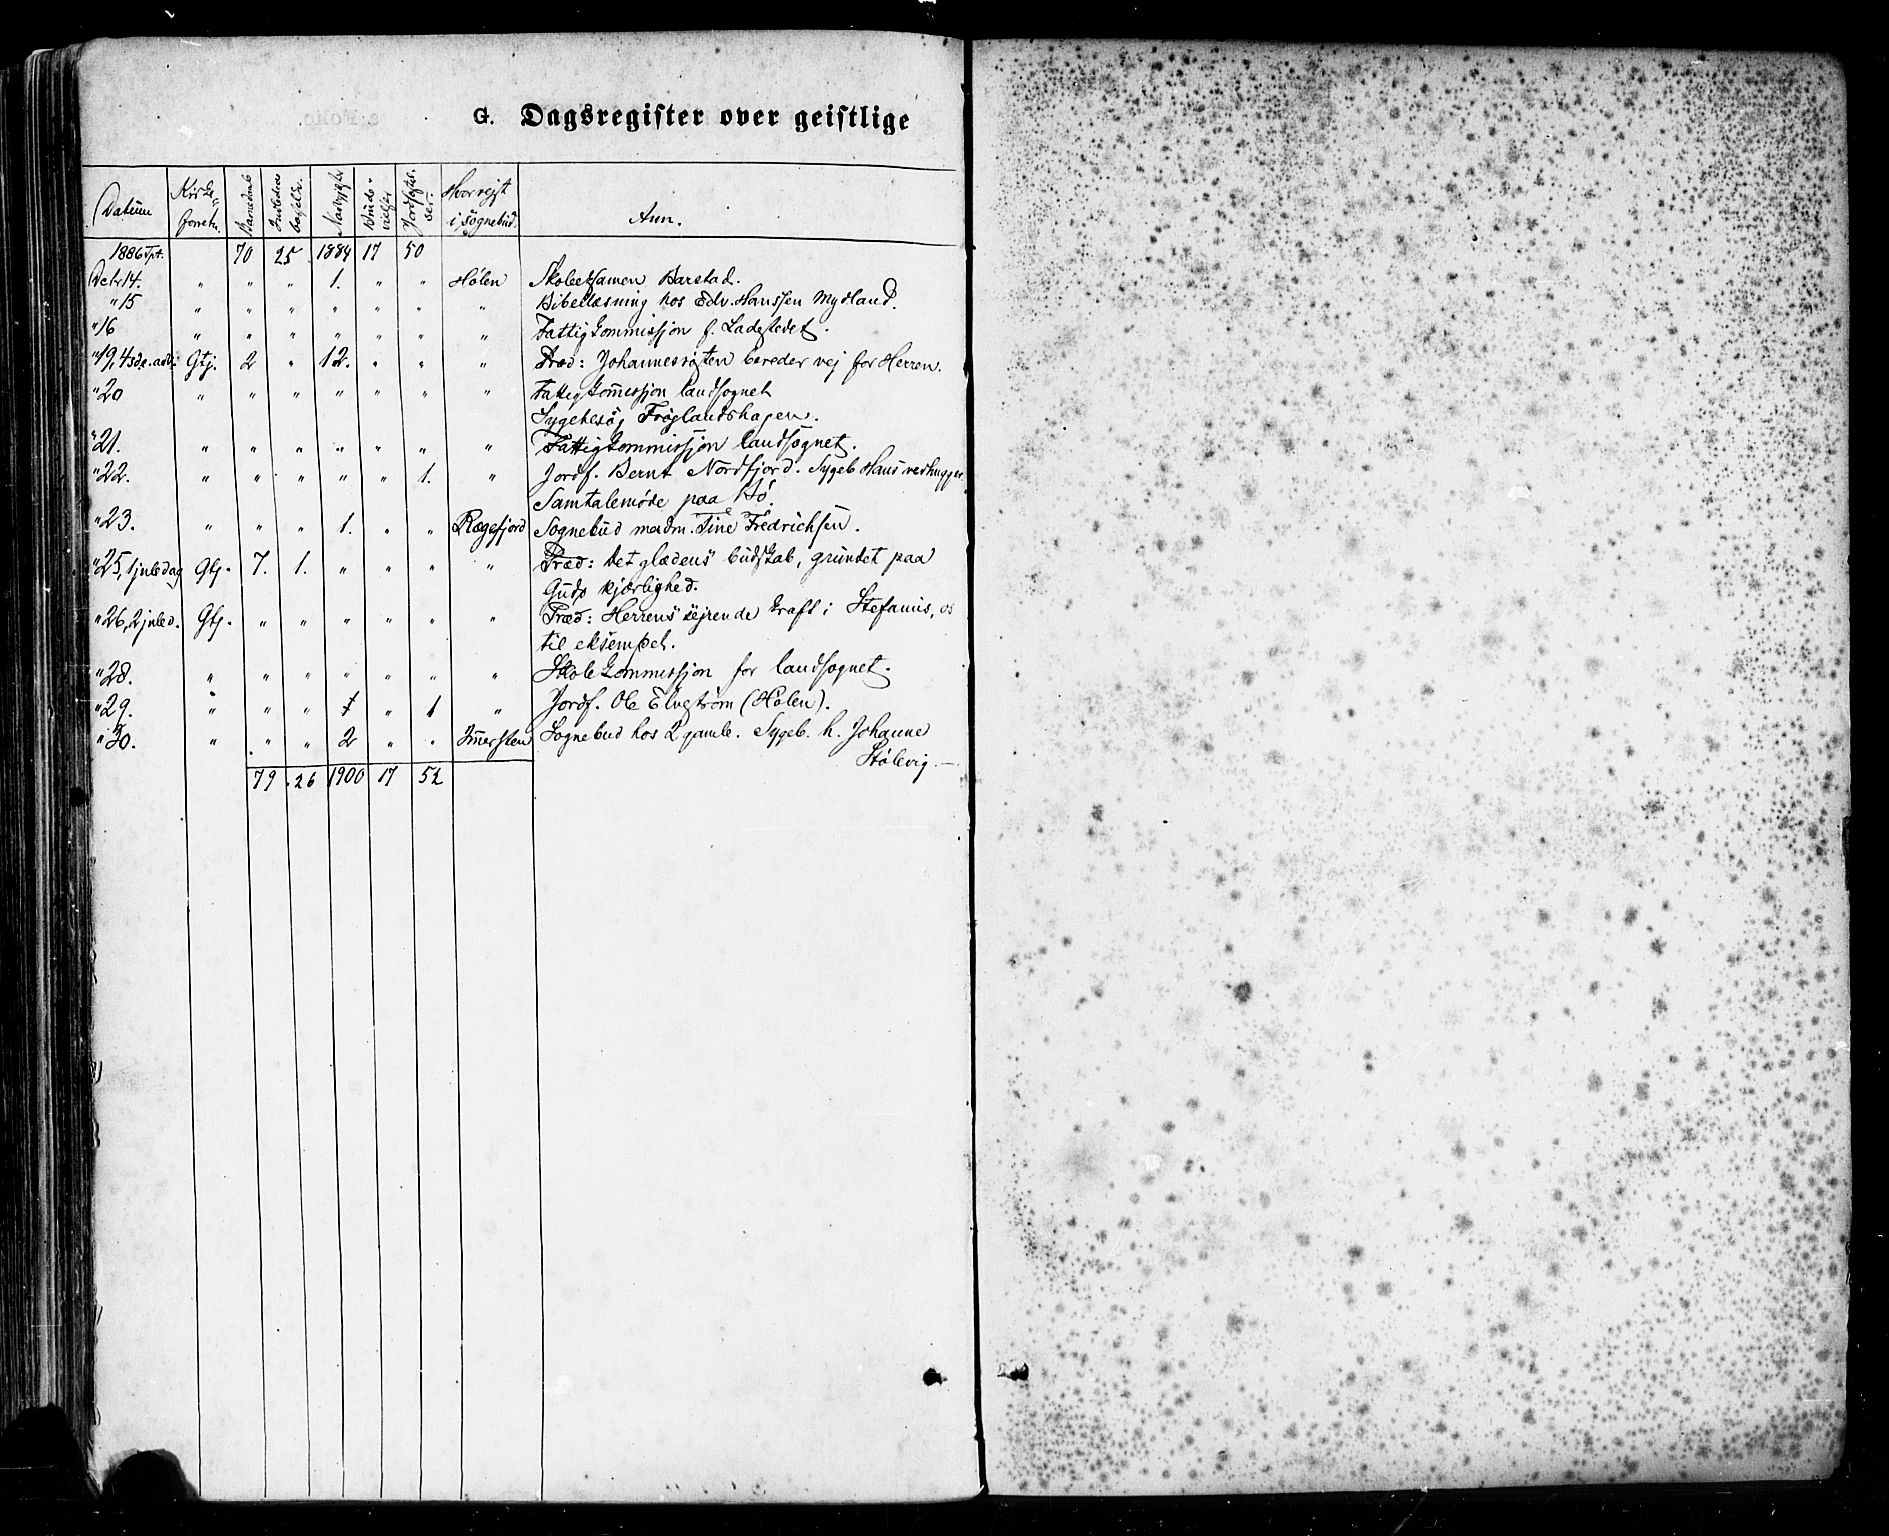 G. Dagsregister over geistlige
Datum Kirkeforretn. Barnedaab Nadvgjæster Hvor rejst i sognebud. Anm.
1886 Tpt. 70 25 1884 17 50
Decbr 14. " " " 1. " " Hølen Skoleexamen Barstad.
" 15 " " " " " " " Bibellæsning hos Edv. Hanssen Mydland.
" 16 " " " " " " " Fattigkommissjon f. Ladestedet.
" 19, 4 sde. adv. Gtj. 2 " 12. " " " Præd: Johannesrøsten bereder vej for Herren.
" 20 " " " " " " " Fattigkommissjon landsognet
Sygebesøg Frøglandshagen.
" 21. " " " " " " " Fattigkommissjon landsognet.
" 22. " " " " " 1. " Jordf. Bernt Nordfjord. Sygeb Hans vedhugger
Samtalemøde paa Bø.
" 23. " " " 1. " " Rægefjord Sognebud madm. Tine Fredrichsen.
" 25, 1 juledag Gtj. 7. 1. " " " " Præd: Det glædens budskab, grundet paa
Guds kjærlighed.
" 26, 2 juled. Gtj. " " " " " " Præd: Herrens sejrende kraft i Stefanus, os
til eksempel.
" 28. " " " " " " " Skolekommissjon for landsognet.
" 29. " " " 1 " 1 " Jordf. Ole Elvstrøm (Hølen).
" 30. " " " 2 " " Immersten Sognebud hos 2 gamle. Sygeb. h. Johanne
Stølevig. —
79 26 1900 17 52